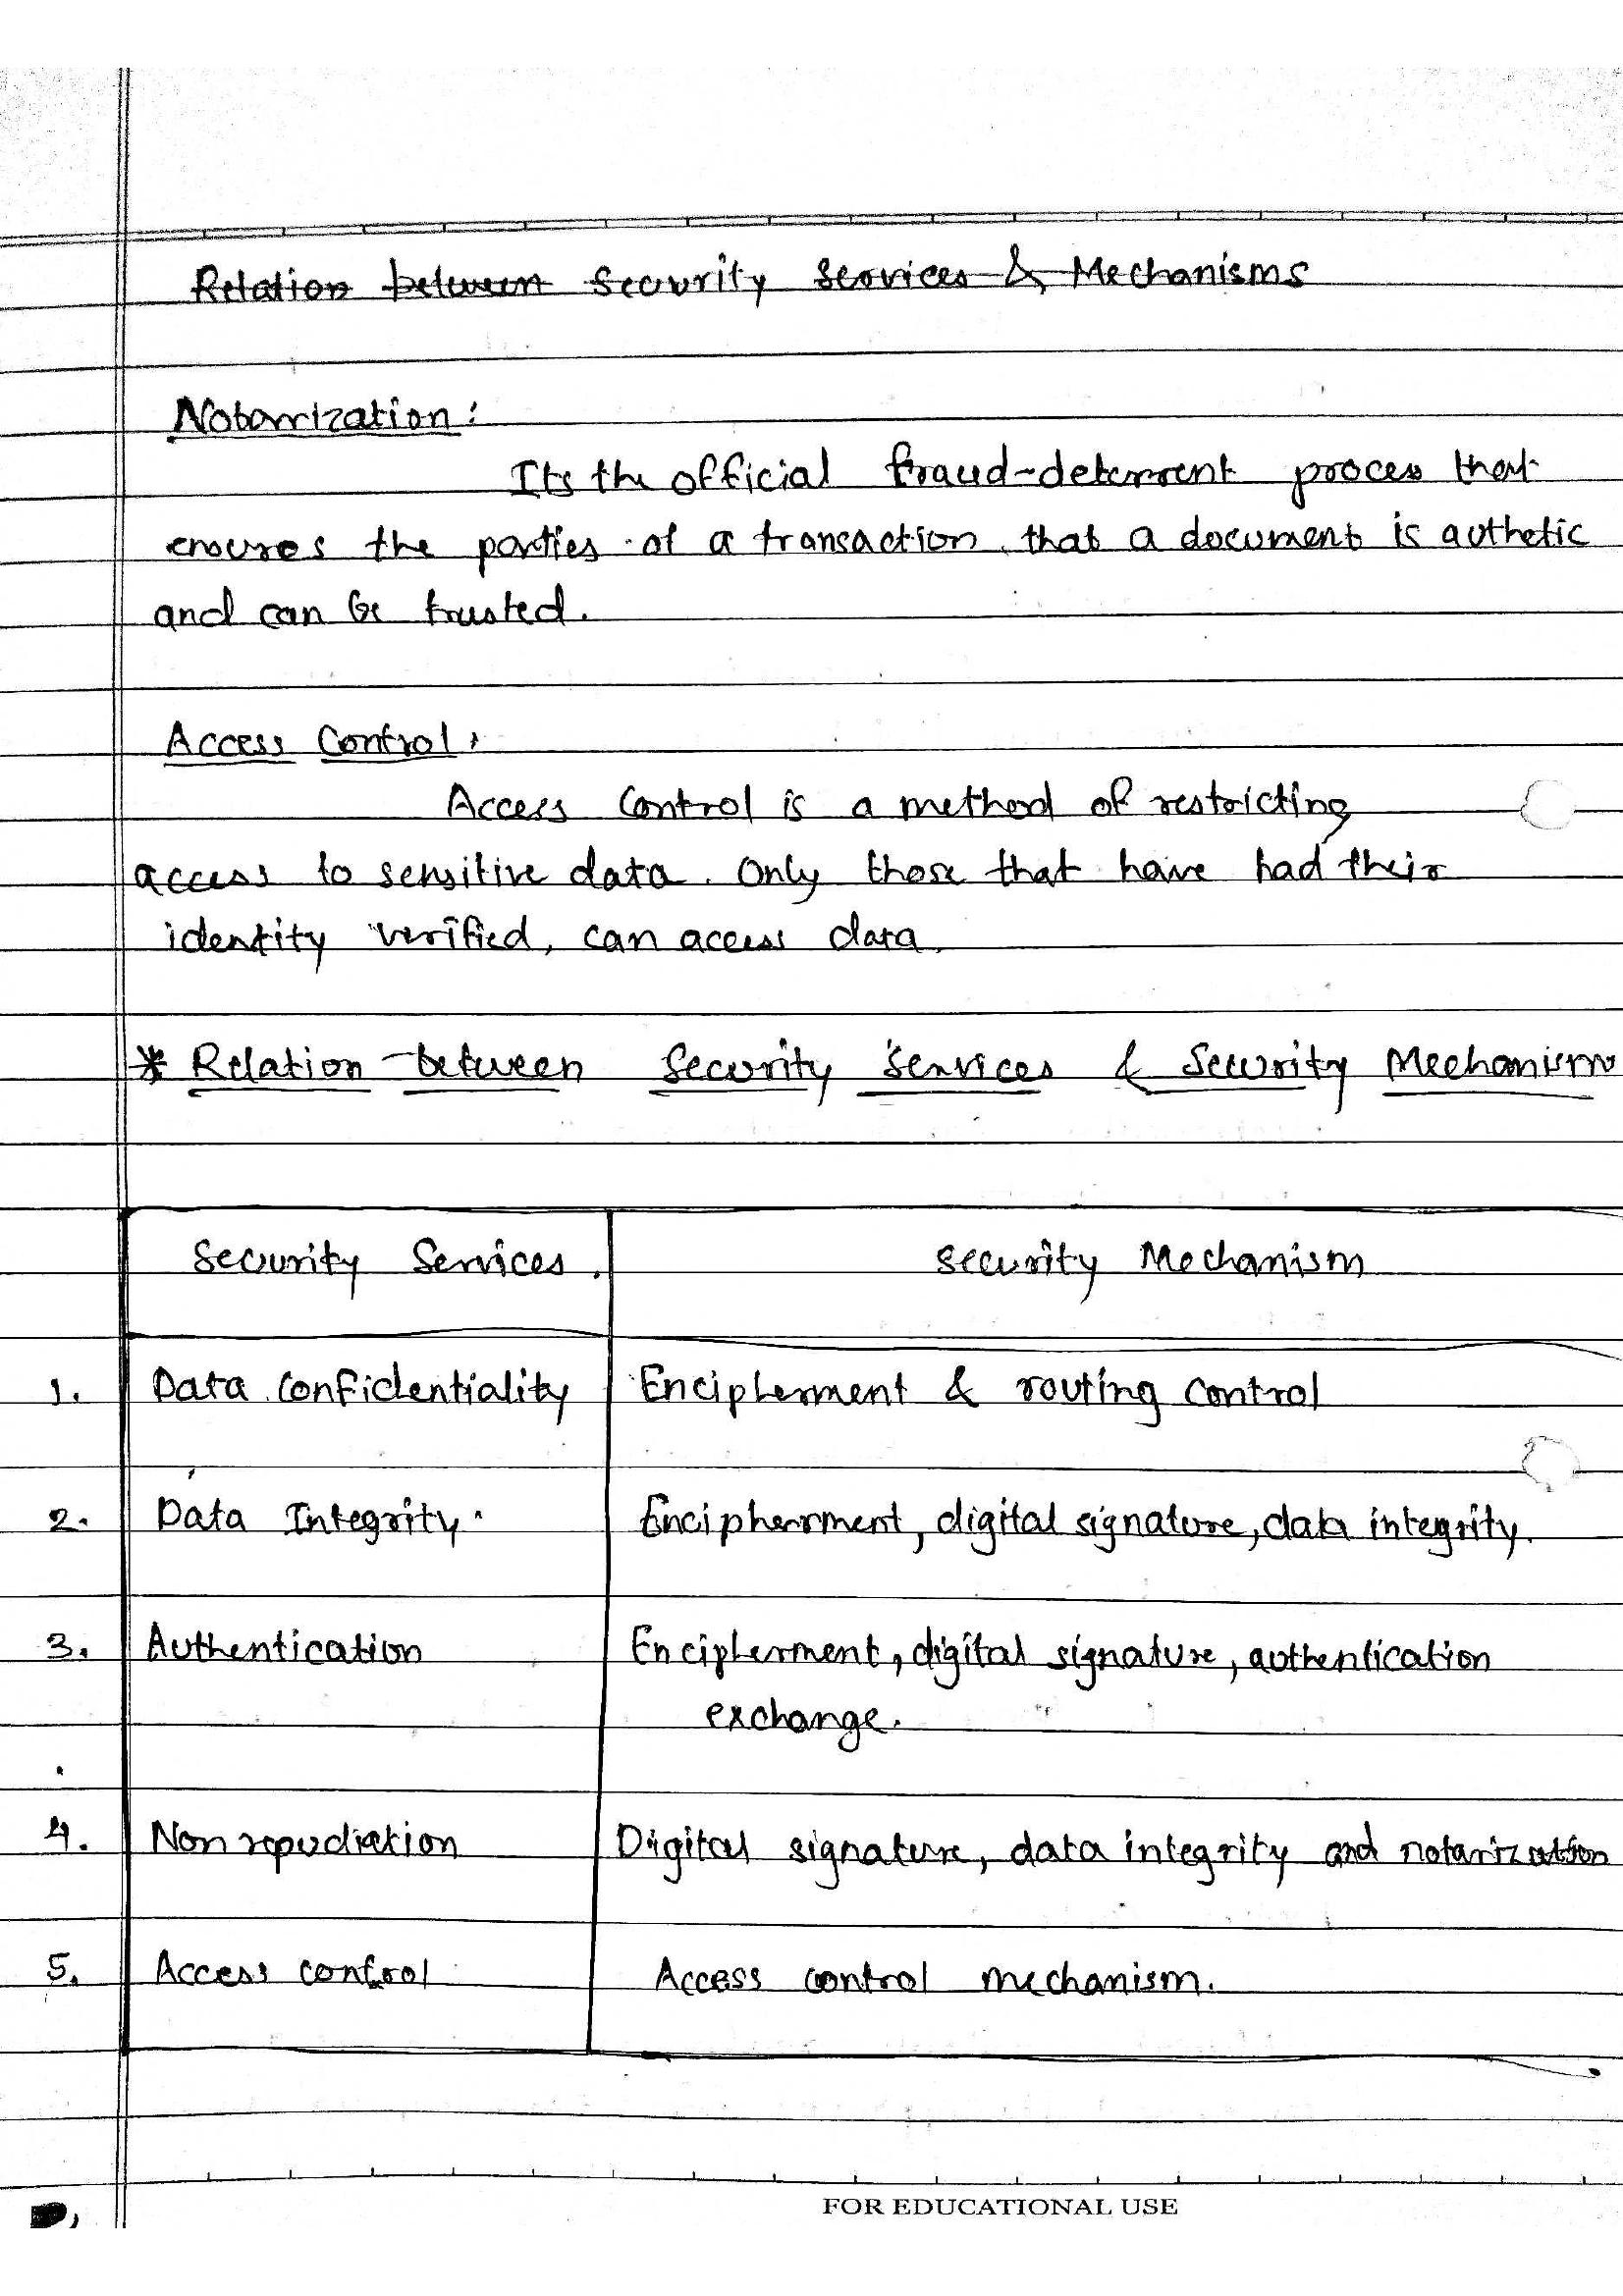 Relation between Security Services & Mechanisms
Notarrization :
Its the official fraud-deterrent process that
ensures the parties of a transaction that a document is authetic
and can be trusted.
Access Control,
Access Control is a method of restricting
access to sensitive data. Only those that have had their
identity verified, can access data.
* Relation between Security Services & Security Mechanism
Security Services. Security Mechanism
1. Data Confidentiality Encipherment & routing control
2. Data Integrity. Encipherment, digital signature, data integrity.
3. Authentication Encipherment, digital signature, authentication
exchange.
4. Non repudiation Digital signature, data integrity and notarization
5. Access control Access control mechanism.
FOR EDUCATIONAL USE